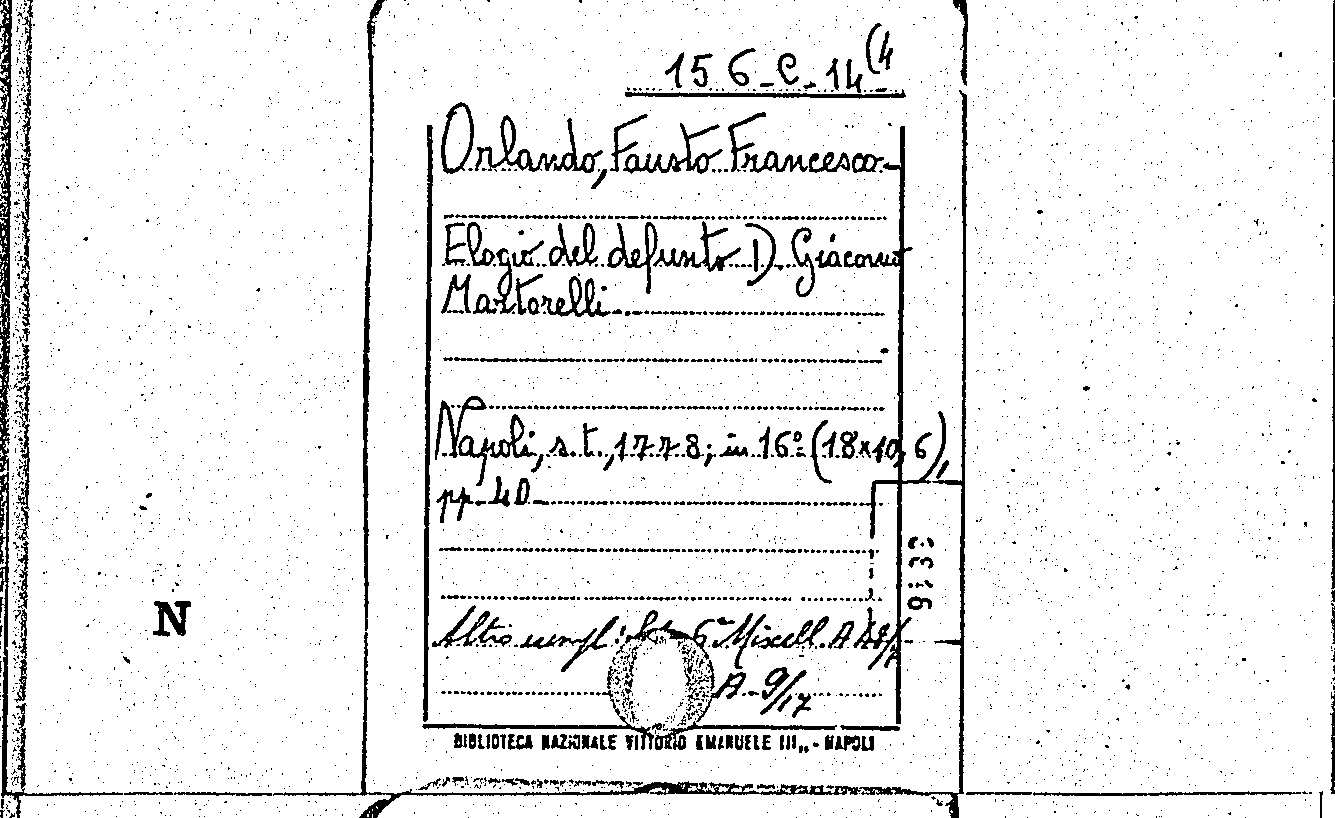 156-C-14(4
Orlando, Fausto Francesco-
Elogio del defunto D. Giacomo
Martorelli
Napoli, s.t., 1778; in 16º (18x10,6),
pp. 40
N
Altro 6ª Miscell. A
A 9/17
BIBLIOTECA NAZIONALE VITTORIO EMANUELE III„ - NAPOLI